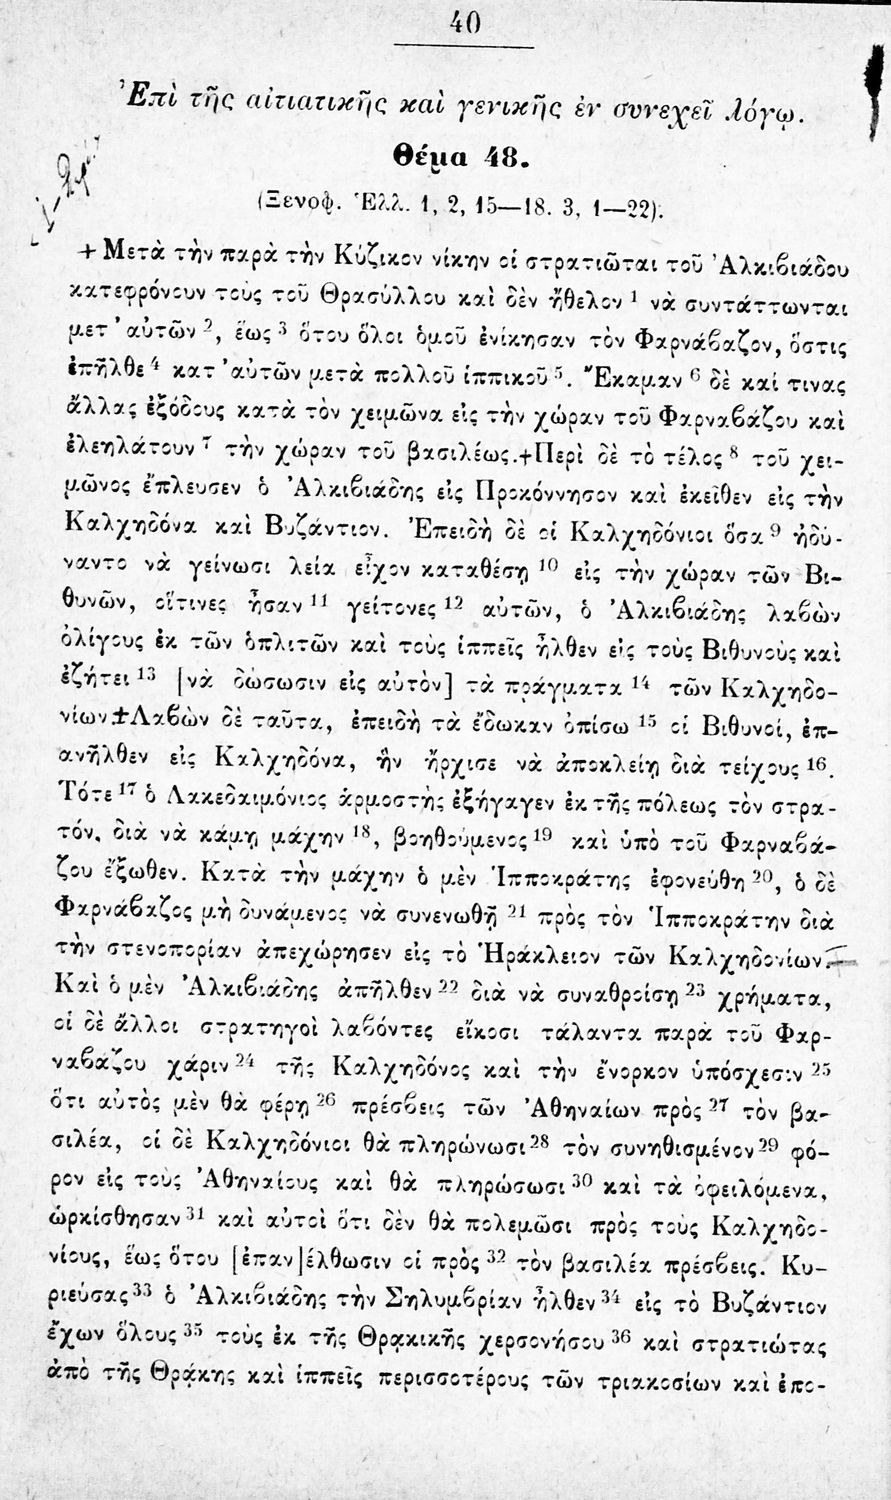 40
Ἐπὶ τῆς αἰτιατικῆς καὶ γενικῆς ἐν συνεχεῖ λόγῳ.
Θέμα 48.
(Ξενοφ. Ἑλλ. 1, 2, 15—18. 3, 1—22).
+ Μετὰ τὴν παρὰ τὴν Κύζικον νίκην οἱ στρατιῶται τοῦ Ἀλκιβιάδου
κατεφρόνουν τοὺς τοῦ Θρασύλλου καὶ δὲν ἤθελον 1 νὰ συντάττωνται
μετ' αὐτῶν 2, ἕως 3 ὅτου ὅλοι ὁμοῦ ἐνίκησαν τὸν Φαρνάβαζον, ὅστις
ἐπῆλθε 4 κατ' αὐτῶν μετὰ πολλοῦ ἱππικοῦ 5. Ἔκαμαν 6 δὲ καί τινας
ἄλλας ἐξόδους κατὰ τὸν χειμῶνα εἰς τὴν χώραν τοῦ Φαρναβάζου καὶ
ἐλεηλάτουν 7 τὴν χώραν τοῦ βασιλέως.+Περὶ δὲ τὸ τέλος 8 τοῦ χει-
μῶνος ἔπλευσεν ὁ Ἀλκιβιάδης εἰς Προκόννησον καὶ ἐκεῖθεν εἰς τὴν
Καλχηδόνα καὶ Βυζάντιον. Ἐπειδὴ δὲ οἱ Καλχηδόνιοι ὅσα 9 ἠδύ-
ναντο νὰ γείνωσι λεία εἶχον καταθέσῃ 10 εἰς τὴν χώραν τῶν Βι-
θυνῶν, οἵτινες ἦσαν 11 γείτονες 12 αὐτῶν, ὁ Ἀλκιβιάδης λαβὼν
ὀλίγους ἐκ τῶν ὁπλιτῶν καὶ τοὺς ἱππεῖς ἦλθεν εἰς τοὺς Βιθυνοὺς καὶ
ἐζήτει 13 [νὰ δώσωσιν εἰς αὐτὸν] τὰ πράγματα 14 τῶν Καλχηδο-
νίων.±Λαβὼν δὲ ταῦτα, ἐπειδὴ τὰ ἔδωκαν ὀπίσω 15 οἱ Βιθυνοί, ἐπ-
ανῆλθεν εἰς Καλχηδόνα, ἣν ἤρχισε νὰ ἀποκλείῃ διὰ τείχους 16.
Τότε 17 ὁ Λακεδαιμόνιος ἁρμοστὴς ἐξήγαγεν ἐκ τῆς πόλεως τὸν στρα-
τόν, διὰ νὰ κάμῃ μάχην 18, βοηθούμενος 19 καὶ ὑπὸ τοῦ Φαρναβά-
ζου ἔξωθεν. Κατὰ τὴν μάχην ὁ μὲν Ἱπποκράτης ἐφονεύθη 20, ὁ δὲ
Φαρνάβαζος μὴ δυνάμενος νὰ συνενωθῇ 21 πρὸς τὸν Ἱπποκράτην διὰ
τὴν στενοπορίαν ἀπεχώρησεν εἰς τὸ Ἡράκλειον τῶν Καλχηδονίων.
Καὶ ὁ μὲν Ἀλκιβιάδης ἀπῆλθεν 22 διὰ νὰ συναθροίσῃ 23 χρήματα,
οἱ δὲ ἄλλοι στρατηγοὶ λαβόντες εἴκοσι τάλαντα παρὰ τοῦ Φαρ-
ναβάζου χάριν 24 τῆς Καλχηδόνος καὶ τὴν ἔνορκον ὑπόσχεσιν 25
ὅτι αὐτὸς μὲν θὰ φέρῃ 26 πρέσβεις τῶν Ἀθηναίων πρὸς 27 τὸν βα-
σιλέα, οἱ δὲ Καλχηδόνιοι θὰ πληρώνωσι 28 τὸν συνηθισμένον 29 φό-
ρον εἰς τοὺς Ἀθηναίους καὶ θὰ πληρώσωσι 30 καὶ τὰ ὀφειλόμενα,
ὡρκίσθησαν 31 καὶ αὐτοὶ ὅτι δὲν θὰ πολεμῶσι πρὸς τοὺς Καλχηδο-
νίους, ἕως ὅτου [ἐπαν]έλθωσιν οἱ πρὸς 32 τὸν βασιλέα πρέσβεις. Κυ-
ριεύσας 33 ὁ Ἀλκιβιάδης τὴν Σηλυμβρίαν ἦλθεν 34 εἰς τὸ Βυζάντιον
ἔχων ὅλους 35 τοὺς ἐκ τῆς Θρᾳκικῆς χερσονήσου 36 καὶ στρατιώτας
ἀπὸ τῆς Θρᾴκης καὶ ἱππεῖς περισσοτέρους τῶν τριακοσίων καὶ ἐπο-